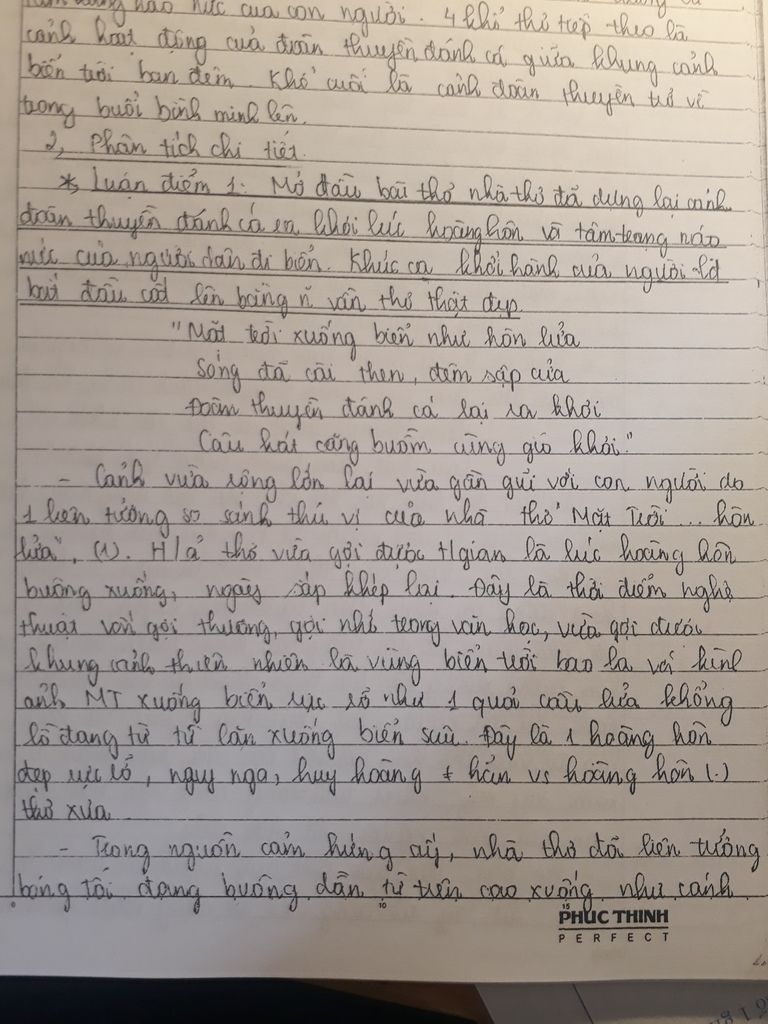 nức của con người. 4 khổ thơ tiếp theo là
cảnh hoạt động của đoàn thuyền đánh cá giữa khung cảnh
biển trời ban đêm. Khổ cuối là cảnh đoàn thuyền trở về
trong buổi bình minh lên.
2, Phân tích chi tiết.
*, Luận điểm 1: Mở đầu bài thơ nhà thơ đã dựng lại cảnh
đoàn thuyền đánh cá ra khơi lúc hoàng hôn và tâm trạng náo
nức của người dân đi biển. Khúc ca khởi hành của người lđ
bắt đầu cất lên bằng n vần thơ thật đẹp
"Mặt trời xuống biển như hòn lửa
Sóng đã cài then, đêm sập cửa
Đoàn thuyền đánh cá lại ra khơi
Câu hát căng buồm cùng gió khơi."
- Cảnh vừa rộng lớn lại vừa gần gũi với con người do
1 liên tưởng so sánh thú vị của nhà thơ "Mặt Trời ... hòn
lửa". (1). H/ả thơ vừa gợi được t/gian là lúc hoàng hôn
buông xuống, ngày sắp khép lại. Đây là thời điểm nghệ
thuật vốn gợi thương, gợi nhớ trong văn học, vừa gợi được
khung cảnh thiên nhiên là vùng biển trời bao la với hình
ảnh MT xuống biển rực rỡ như 1 quả cầu lửa khổng
lồ đang từ từ lặn xuống biển sâu. Đây là 1 hoàng hôn
đẹp rực rỡ, nguy nga, huy hoàng ≠ hẳn vs hoàng hôn (.)
thơ xưa
- Trong nguồn cảm hứng ấy, nhà thơ đã liên tưởng
bóng tối đang buông dần từ trên cao xuống như cánh
0 10 15
PHUC THINH
PERFECT